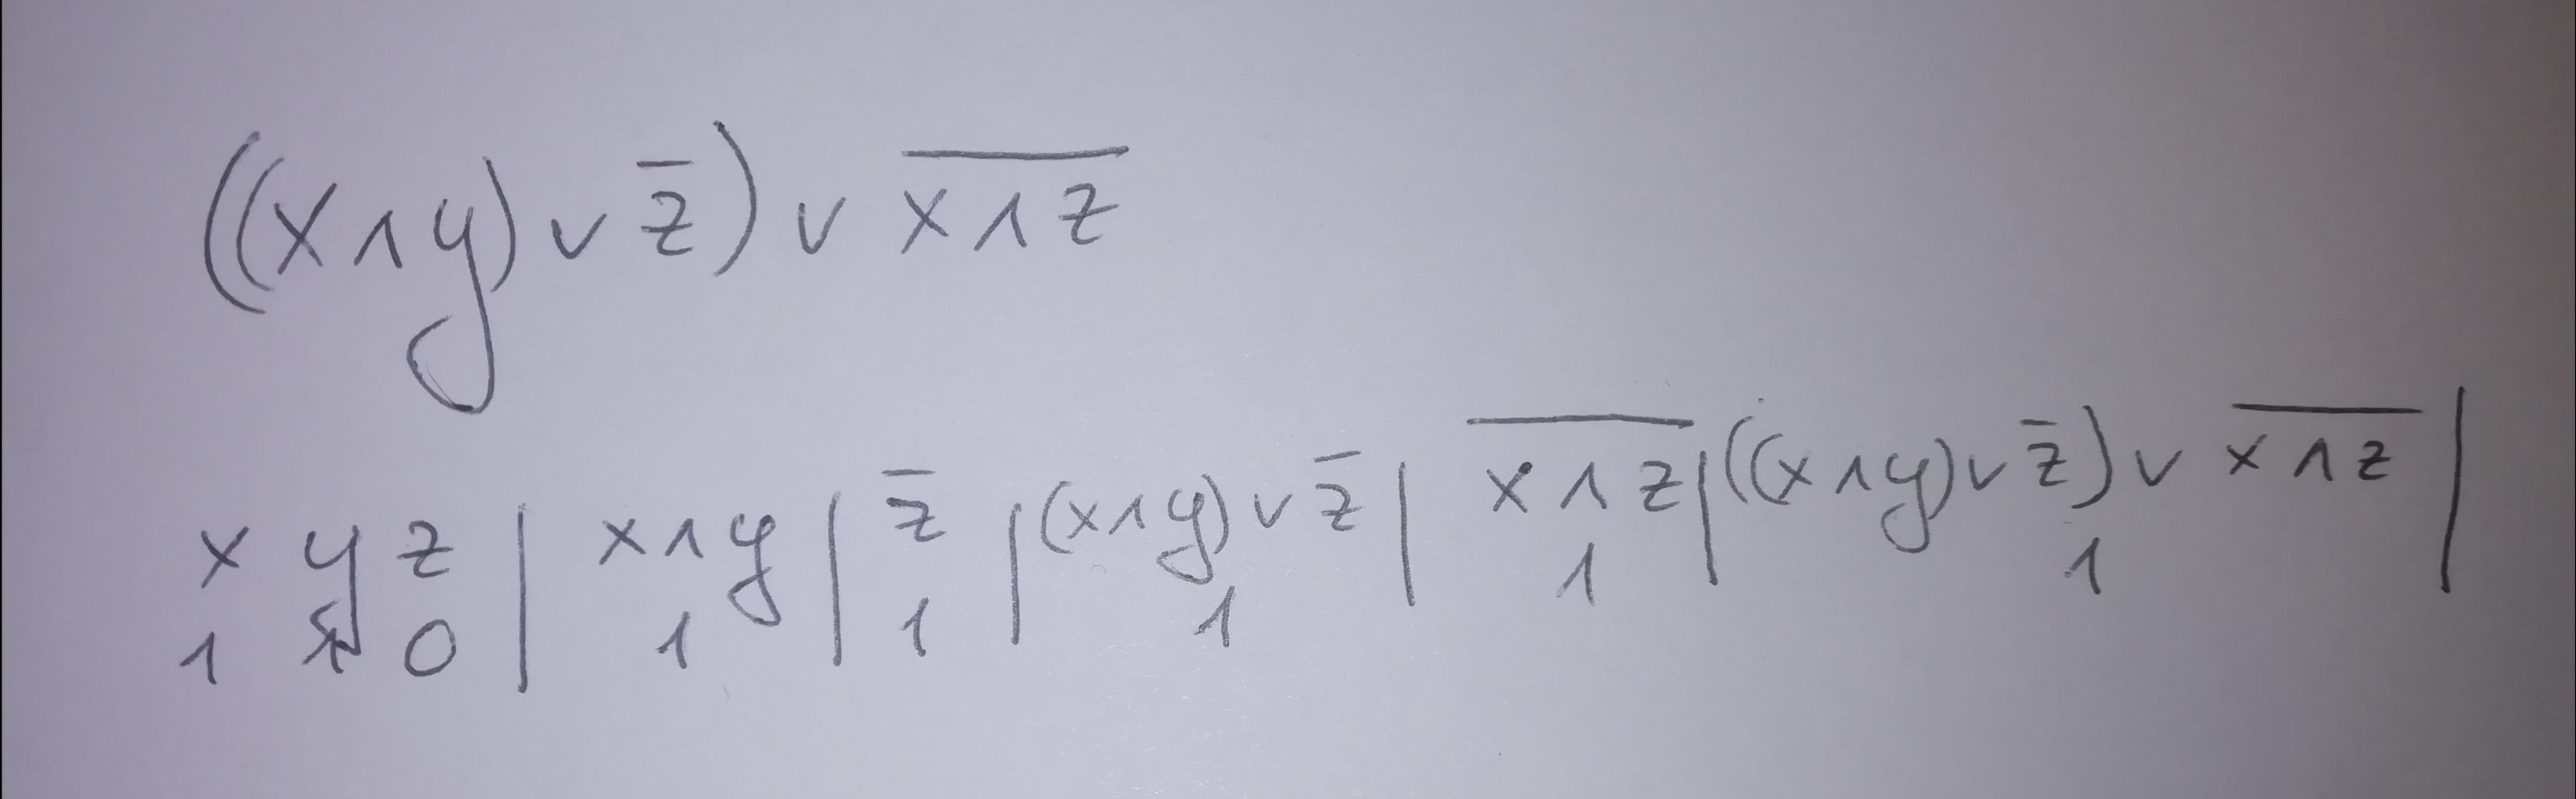 ((x∧y)∨z̅)∨x̅∧̅z̅
x y z | x∧y | z̅ | (x∧y)∨z̅ | x̅∧̅z̅ | ((x∧y)∨z̅)∨x̅∧̅z̅ |
1 0 | 1 | 1 | 1 1 1